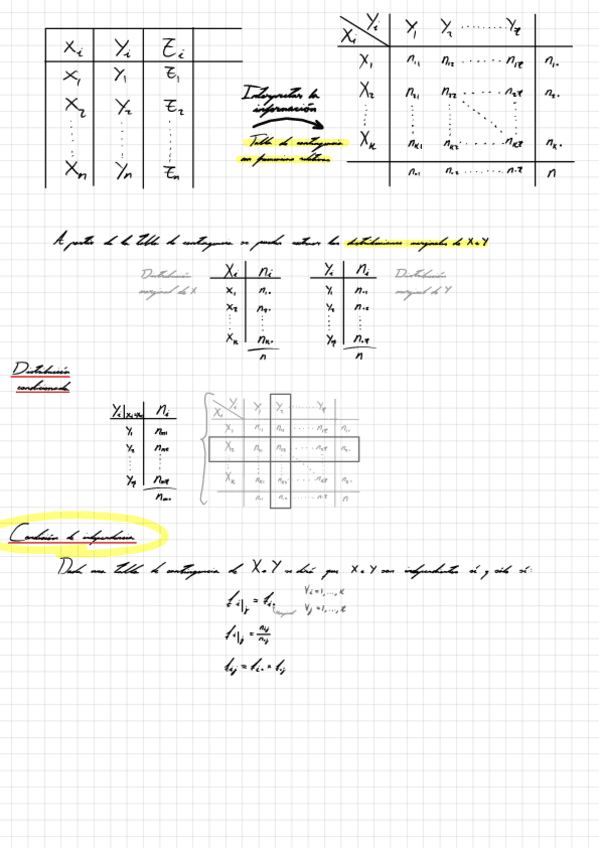 Xi Yi Zi
X1 Y1 Z1
X2 Y2 Z2
Xn Yn Zn
Interpretar la
información
Tabla de contingencia
en frecuencias relativas
Xi Yi Y1 Y2 ........ Yq
X1 n11 n12 ...... n1q n1•
X2 n21 n22 ...... n2q n2•
Xk nk1 nk2 ...... nkq nk•
n•1 n•2 ...... n•q n
A partir de la tabla de contingencia se pueden extraer las distribuciones marginales de X e Y
Distribución
marginal de X
Xi ni
X1 n1•
X2 n2•
Xk nk•
n
Yi ni
Y1 n•1
Y2 n•2
Yq n•q
n
Distribución
marginal de Y
Distribución
condicionada
Yi|Xi=Xm ni
Y1 nm1
Y2 nm2
Yq nmq
nm•
Xi Yi Y1 Y2 ...... Yq
X1 n11 n12 ...... n1q n1•
X2 n21 n22 ...... n2q n2•
Xk nk1 nk2 ...... nkq nk•
n•1 n•2 ...... n•q n
Condición de independencia
Dada una tabla de contingencia de X e Y se dirá que X e Y son independientes si y sólo si:
fi|j = fi•
marginal
∀i=1,...,k